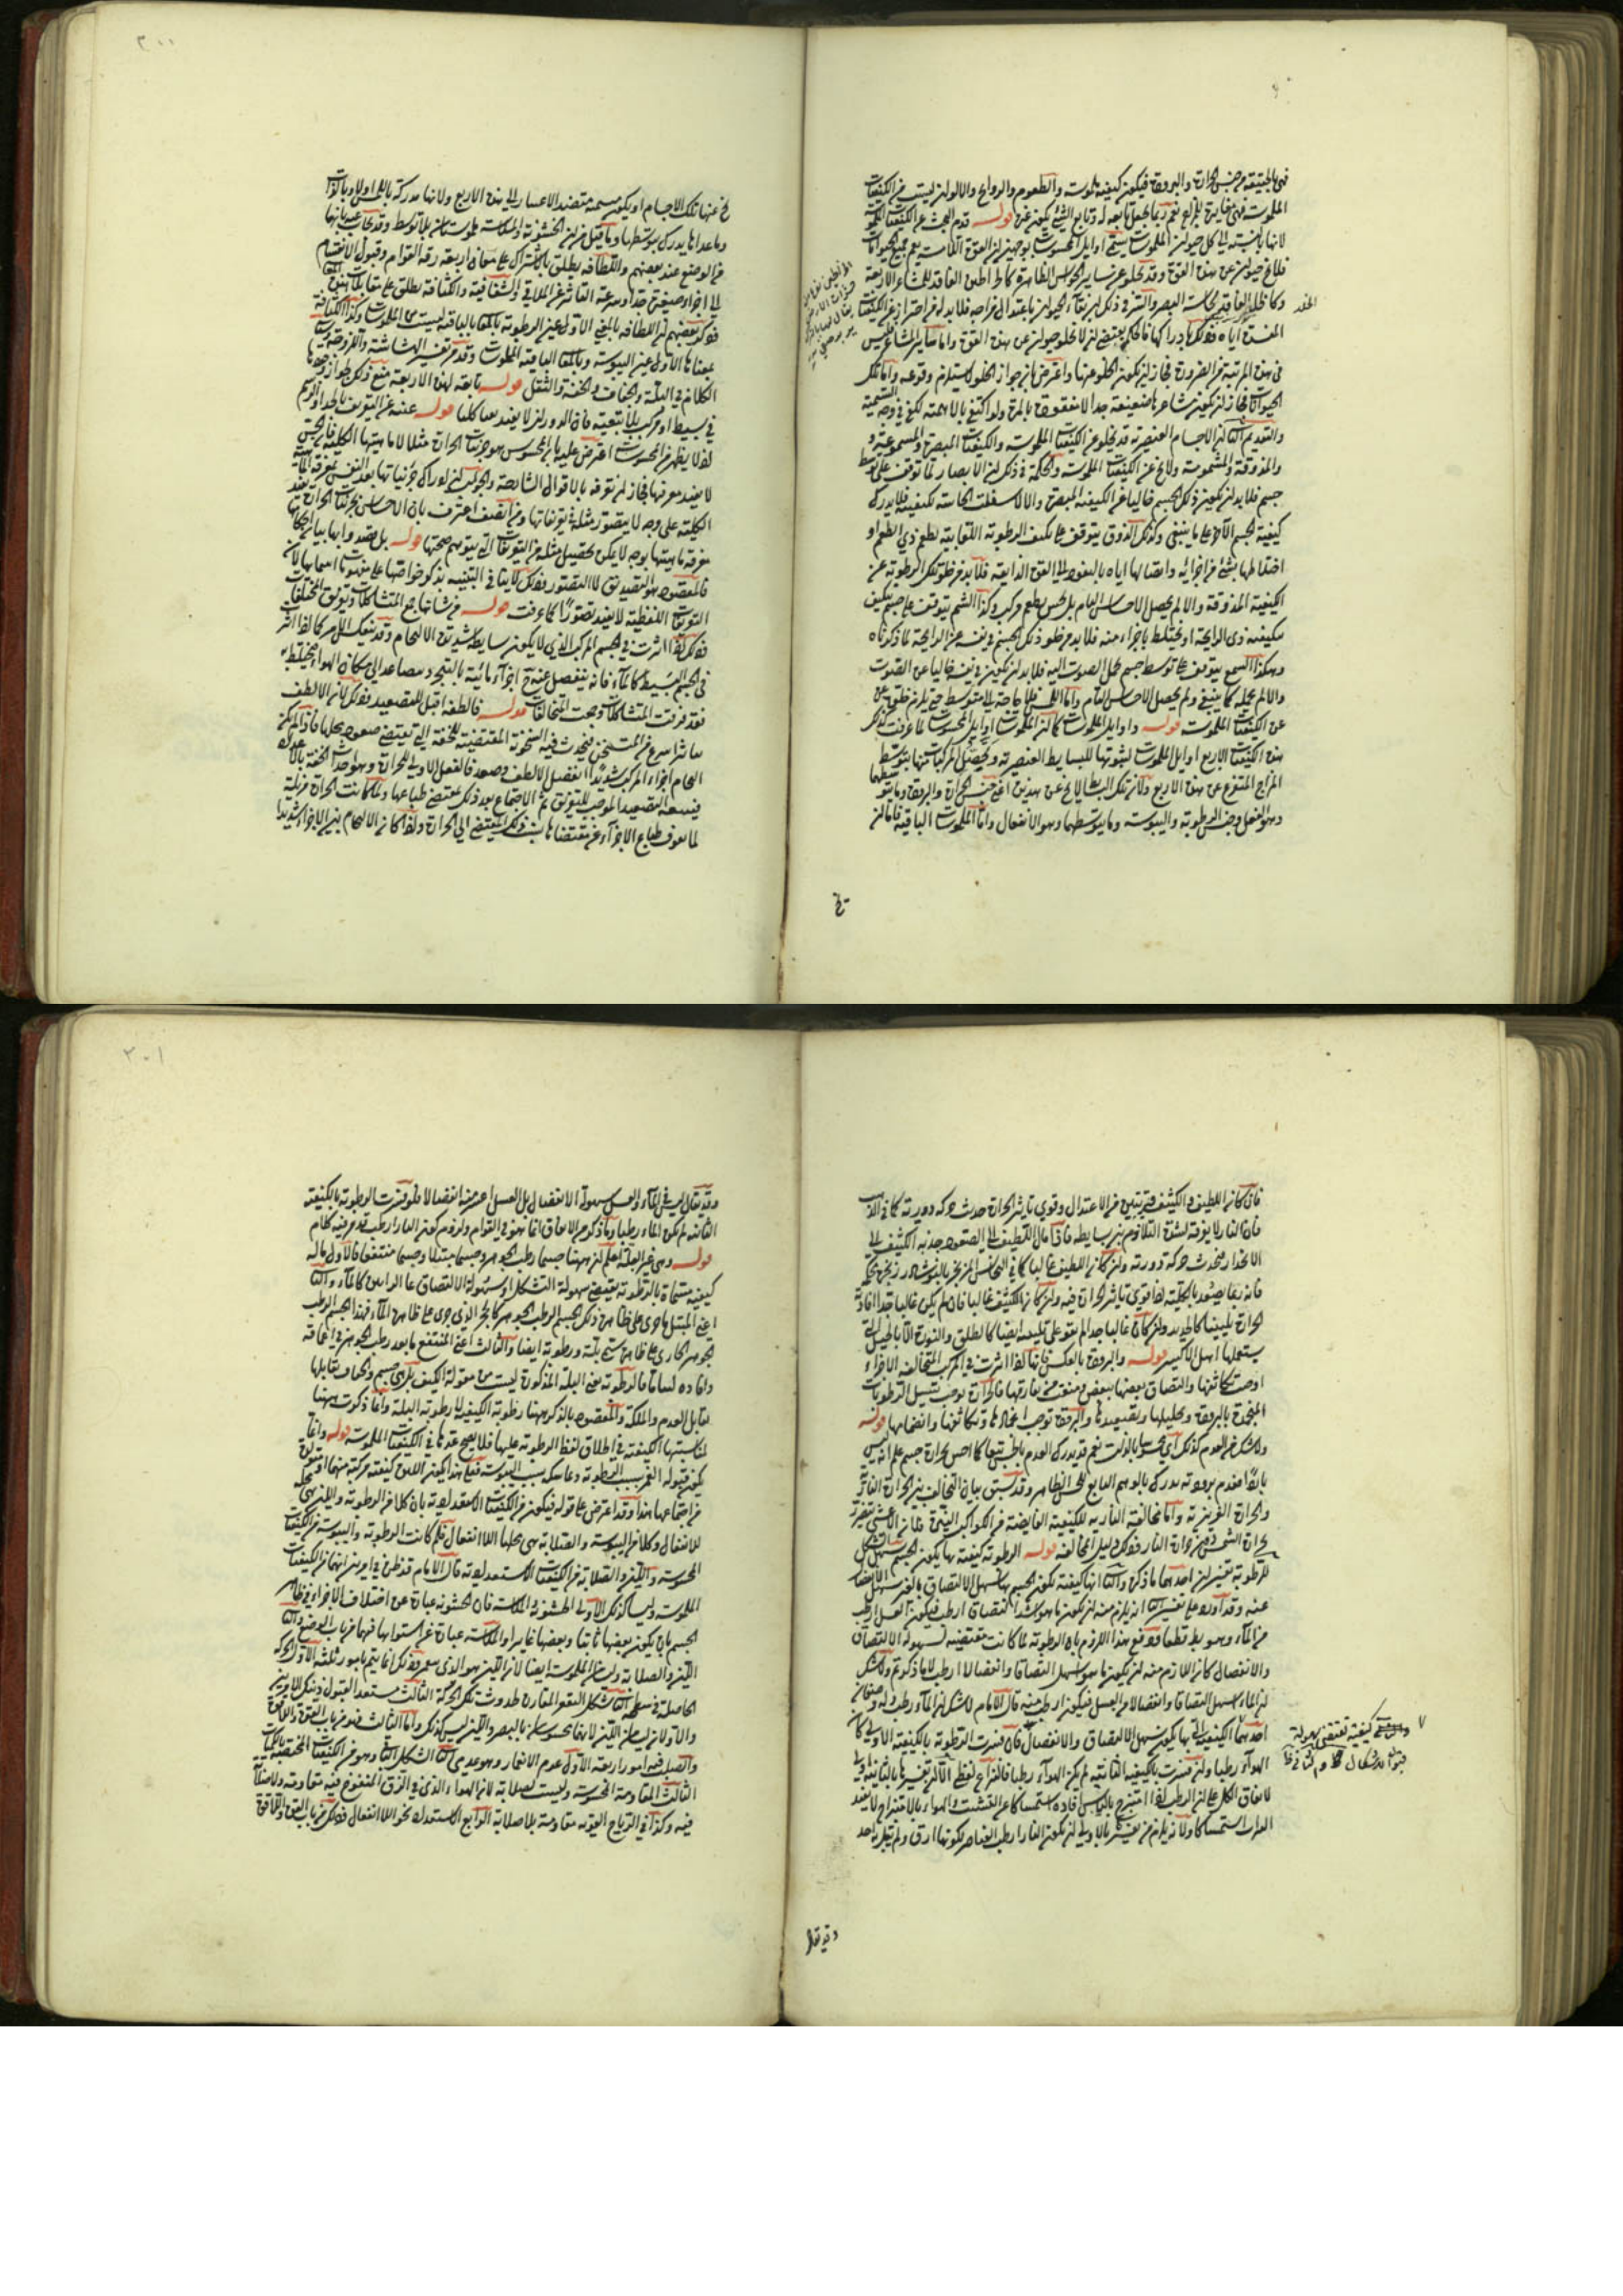 فهى بالحقيقة من جنس الحرارة والبرودة فيكون كيفية ملموسة والطعوم والروايح والالوان ليست من الكيفيات
الملموسة فهى مغايرة للمزاج نعم ربما يجعل تابعة له وتابع الشئ يكون غيره قوله قدم البحث عن الكيفيات الملموسة
لانها بالنسبة الى كل حيوان الملموسات يسمى اوايل المحسوسات لوجهين ان القوة اللامسة يعم جميع الحيوانات
فلا يخ حيوان عن هذه القوة وقد يخلو عن ساير الحواس الظاهرة كالخراطين الفاقد للمشاعر الاربعة
وكالخلد الفاقد لحاسة البصر والسر فى ذلك ان بقاء الحيوان باعتدال مزاجه فلا بد له من احتراز عن الكيفيات
المفسدة اياه وذلك بادراكها فالحكمة يقتضى ان لا يخلو حيوان عن هذه القوة واما ساير المشاعر فليس
فى هذه المرتبة من الضرورة فجاز ان يكون الخلو عنها واعترض بان جواز الخلو لا يستلزم وقوعه واما تلك
الحيوانات فجاز ان يكون مشاعرها ضعيفة جدا لا مفقودة بالمرة ولو اكتفى بالاهمية لكفى فى وجه التسمية
والتقديم الثانى ان الاجسام العنصرية قد يخلو عن الكيفيات المبصرة والمسموعة
والمذوقة والمشمومة ولا يخ عن الكيفيات الملموسة والحكمة فى ذلك ان الابصار لما توقف على توسط
جسم فلا بد ان يكون ذلك الجسم خاليا عن الكيفية المبصرة والا لاشتغلت الحاسة بكيفيته فلا يدرك
كيفية الجسم الآخر على ما ينبغى وكذلك الذوق يتوقف على تكيف الرطوبة اللعابية بطعم ذى الطعم او
اختلاطها بشئ من اجزائه وايصالها اياه بالغوص الى القوة الذائقة فلا بد من خلو تلك الرطوبة عن
الكيفية المذوقة والا لم يحصل الاحساس التام بل يحس بطعم مركب وكذا الشم يتوقف على جسم يتكيف
بكيفية ذى الرائحة او يختلط باجزاء منه فلا بد من خلو ذلك الجسم فى نفسه عن الرائحة لما ذكرناه
وهكذا السمع يتوقف على توسط جسم يحمل الصوت اليه فلا بد ان يكون فى نفسه خاليا عن الصوت
والا لم يحمله كما ينبغى ولم يحصل الاحساس التام واما اللمس فلا حاجة به الى متوسط حتى يلزم خلوه
عن الكيفيات الملموسة قوله واوايل الملموسات كما ان الملموسات اوايل المحسوسات لما عرفت كذلك
هذه الكيفيات الاربع اوايل الملموسات لثبوتها للبسايط العنصرية ويحصل للمركبات منها بتوسط
المزاج المتنوع عن هذه الاربع ولان تلك البسايط لا يخ عن هذين اعنى جنس الحرارة والبرودة وما يتوسطهما
وهو الفعل وجنس الرطوبة واليبوسة وما يتوسطهما وهو الانفعال واما الملموسات الباقية فاما ان
الخلد
يخ
٢٠٠
يخ عنها تلك الاجسام او يكون مسمية متضيد الاعسار الى هذه الاربع ولانها مدركة باللمس اولا وبالذات
وما عداها يدرك بتوسطها وما قيل من ان الخشونة والملاسة ملموستان بلا توسط وقد يجاب عنه بانهما
من الوضع عند بعضهم واللطافة يطلق بالاشتراك على معان اربعة رقة القوام وقبول الانقسام
الى اجزاء صغيرة جدا وسرعة التأثر عن الملاقى والشفافية والكثافة يطلق على مقابلات هذه
فذكر بعضهم ان اللطافة بالمعنى الاول عين الرطوبة بالمعانى الباقية ليست من الملموسات وكذا الكثافة
بمعناها الاول عين اليبوسة وبالمعانى الباقية الملموسات وقد مر تفسير الهشاشة واللزوجة
الكلام فى البلة والجفاف والخفة والثقل قوله تابعة لهذه الاربعة منع ذلك لجواز وجودها
فى بسيط او مركب بلا تبعية فان الدوران لا يفيد بها كلها قوله عنه عن التعريف بالحد والرسم
اذ لا يظهر من المحسوسات اعترض عليه بان المحسوس هو جزئيات الحرارة مثلا لا ماهيتها الكلية فالحس
لا يفيد معرفتها فجاز ان تعرف بالاقوال الشارحة والجواب ان ادراك جزئياتها يعد النفس لمعرفة الماهية
الكلية على وجه لا يتصور مثله فى تعريفاتها ومن انصف اعترف بان الاحساس بجزئيات الحرارة يفيد
معرفة ماهيتها بوجه لا يمكن تحصيل مثله من التعريفات التى يتوهم صحتها قوله بل يقصد وايها بيان احكامها
فالمقصود هو التصديق لا التصور وذلك لا ينافى التنبيه بذكر خواصها على مفهومات اسمائها لان
التعريفات اللفظية لا يفيد تصورا كما عرفت قوله من شانها جمع المتشاكلات وتفريق المختلفات
ذلك اذا اثرت فى الجسم المركب الذى لا يكون بسايطه شديدة الالتحام وقد ينعكس الامر كما اذا اثر
فى الجسم البسيط كالماء فانه ينفصل عنه ح اجزاء مائية بالتبخر ويصاعد الى مكان الهواء مختلط به
فقد فرقت المتشاكلات وجمعت المختلفات قوله فالطفه اقبل للتصعيد وذلك لان الالطف
ما تاثر اسرع من المتسخن فيحدث فيه السخونة المقتضية للخفة التى تقتضى صعود محلها فاذا لم يكن
التحام اجزاء المركب شديدا انفصل الالطف وصعد فالفعل الاولى للحرارة وهو احداث الخفة
فيتبعه التصعيد الموجب للتفريق ثم الاجتماع بعد ذلك بمقتضى طباعها ولما كانت الحرارة مزيلة
لما يعوق طباع الاجزاء عن مقتضاها نسب ذلك المقتضى الى الحرارة واذا كان الالتحام بين الاجزاء شديدا
فان كان اللطيف والكثيف قريبين من الاعتدال وقوى تاثير الحرارة حدث حركة دورية كما فى الذهب
فان النار لا يفرقه لشدة التلازم بين بسايطه فاذا مال اللطيف الى الصعود جذبه الكثيف الى
الانحدار فحدث حركة دورية وان كان اللطيف غالبا كما فى النحاس المزنجر بالنوشادر
فانه ربما يصعد بالكلية اذا قوى تاثير الحرارة فيه وان كان الكثيف غالبا فان لم يكن غالبا جدا افادته
الحرارة تليينا كالحديد وان كان غالبا جدا لم يقو على تليينه ايضا كالطلق والنورة الا بالحيل التى
يستعملها اهل الاكسير قوله والبرودة بالعكس فانها اذا اثرت فى المركب المتخالف الاجزاء
اوجب تكاثفها والتصاق بعضها ببعض ومنعت من مفارقتها فالحرارة يوجب تسييل الرطوبات
المنجمدة بالبرودة وتحليلها وتصعيدها والبرودة توجب انجمادها وتكاثفها وانضمامها قوله
ولا شك ان العدم كذلك اى محسوسا بالذات نعم قد يدرك العدم بالحس تبعا كما احس بحرارة جسم علم انه ليس
باردا فعدم برودته يدرك بالوهم التابع للحس الظاهر وقد سبق بيان التخالف بين الحرارة النارية
والحرارة الغريزية واما مخالفة النارية للكيفية الفايضة من الكواكب النيرة فلان الاعشى يتضرر
بحرارة الشمس دون حرارة النار فذلك دليل المخالفة قوله الرطوبة كيفية بها يكون الجسم سهل التشكل
للرطوبة تفسيران احدهما ما ذكره والثانى انها كيفية يكون الجسم بها سهل الالتصاق بالغير سهل الانفصال
عنه وقد اورد على تفسير الثانى انه يلزم منه ان يكون ما هو اشد التصاقا ارطب فيكون العسل ارطب
من الماء وهو بط قطعا ودفع هذا اللزوم بان الرطوبة لما كانت مقتضية لسهولة الالتصاق
والانفصال كان اللازم منه ان يكون ما هو اسهل التصاقا وانفصالا ارطب لا ما ذكرتم ولا شك
ان الماء اسهل التصاقا وانفصالا من العسل فيكون ارطب منه قال الامام لا شك ان الماء رطب وله وصفان
احدهما الكيفية التى بها يكون سهل الالتصاق والانفصال فان فسرت الرطوبة بالكيفية الاولى كان
الهواء رطبا وان فسرت بالكيفية الثانية لم يكن الهواء رطبا فالنزاع لفظى الا ان تفسيرها بالثانية اولى
لاتفاق الكل على ان الرطب اذا امتزج باليابس افاده استمساكا عن التشتت والهواء بالامتزاج لا يفيد
التراب استمساكا ولانه يلزم من تفسيره بالاولى ان يكون النار ارطب العناصر لكونها ارق ولم يقل به احد
كيفية تقتضى سهولة
قبول الاشكال
وقد يقال
٢٠١
وقد يقال ليس فى الماء والعسل سهولة الانفصال بل العسل اعسر منه انفصالا فلو فسرت الرطوبة بالكيفية
الثانية لم يكن الماء رطبا وما ذكره من الاتفاق انما هو فى القوام ولزوم كون النار ارطب قد مر فيه كلام
قوله وهى غير البلة اعلم ان ههنا جسما رطب الجوهر وجسما مبتلا وجسما منتقعا فالاول ما له
كيفية مسماة بالرطوبة يقتضى سهولة التشكل او سهولة الالتصاق على الرايين كالماء والثانى
اعنى المبتل ما جرى على ظاهره ذلك الجسم الرطب الجوهر كالحجر الذى جرى على ظاهره الماء فهذا الجسم الرطب
الجوهر الجارى على ظاهره يسمى بلة ورطوبة ايضا والثالث اعنى المنتقع ما نفذ رطب الجوهر فى اعماقه
وافاده لينا فالرطوبة بمعنى البلة المذكورة ليست من مقولة الكيف بل هى جسم والجفاف يقابلها
تقابل العدم والملكة والمقصود بالذكر ههنا رطوبة الكيفية لا رطوبة البلة وانما ذكرت ههنا
لمناسبتها الكيفية فى اطلاق لفظ الرطوبة عليها فلا يصح عدها فى الكيفيات الملموسة قوله وانما
يكون قبوله الغمز بسبب الرطوبة وتماسكه بسبب اليبوسة فعلى هذا يكون اللين كيفية مركبة منهما
من اجتماعهما هذا وقد اعترض على قوله فيكون من الكيفيات الاستعدادية بان كلا من الرطوبة واللين يهيئ محله
للانفعال وكلا من اليبوسة والصلابة يهيئ محلها اللا انفعال فلم كانت الرطوبة واليبوسة من الكيفيات
المحسوسة واللين والصلابة من الكيفيات الاستعدادية قال الامام قد ظن فى امرين انهما من الكيفيات
الملموسة وليسا كذلك الاول الخشونة والملاسة فان الخشونة عبارة عن اختلاف الاجزاء فى ظاهر
الجسم بان يكون بعضها ناتيا وبعضها غايرا والملاسة عبارة عن استوائها فهما من باب الوضع والثانى
اللين والصلابة وليسا من الملموسة ايضا لان اللين هو الذى ينغمز وذلك انما يتم بامور ثلثة الاول الحركة
الحاصلة فى سطحه الثانى شكل التقعير المقارن لحدوث تلك الحركة الثالث مستعد لقبول ذينك الامرين
والاولان ليسا من اللين لانهما محسوسان بالبصر واللين ليس كذلك واما الثالث فهو من باب القوة واللاقوة
والصلب فيه امور اربعة الاول عدم الانغمار وهو عدمى الثانى الشكل الباقى وهو من الكيفيات المختصة بالكميات
الثالث المقاومة المحسوسة وليست بصلابة لان الهواء الذى فى الزق المنفوخ فيه مقاومة ولا صلابة
فيه وكذا فى الرياح القوية مقاومة بلا صلابة الرابع الاستعداد نحو اللا انفعال وذلك من باب القوة واللاقوة